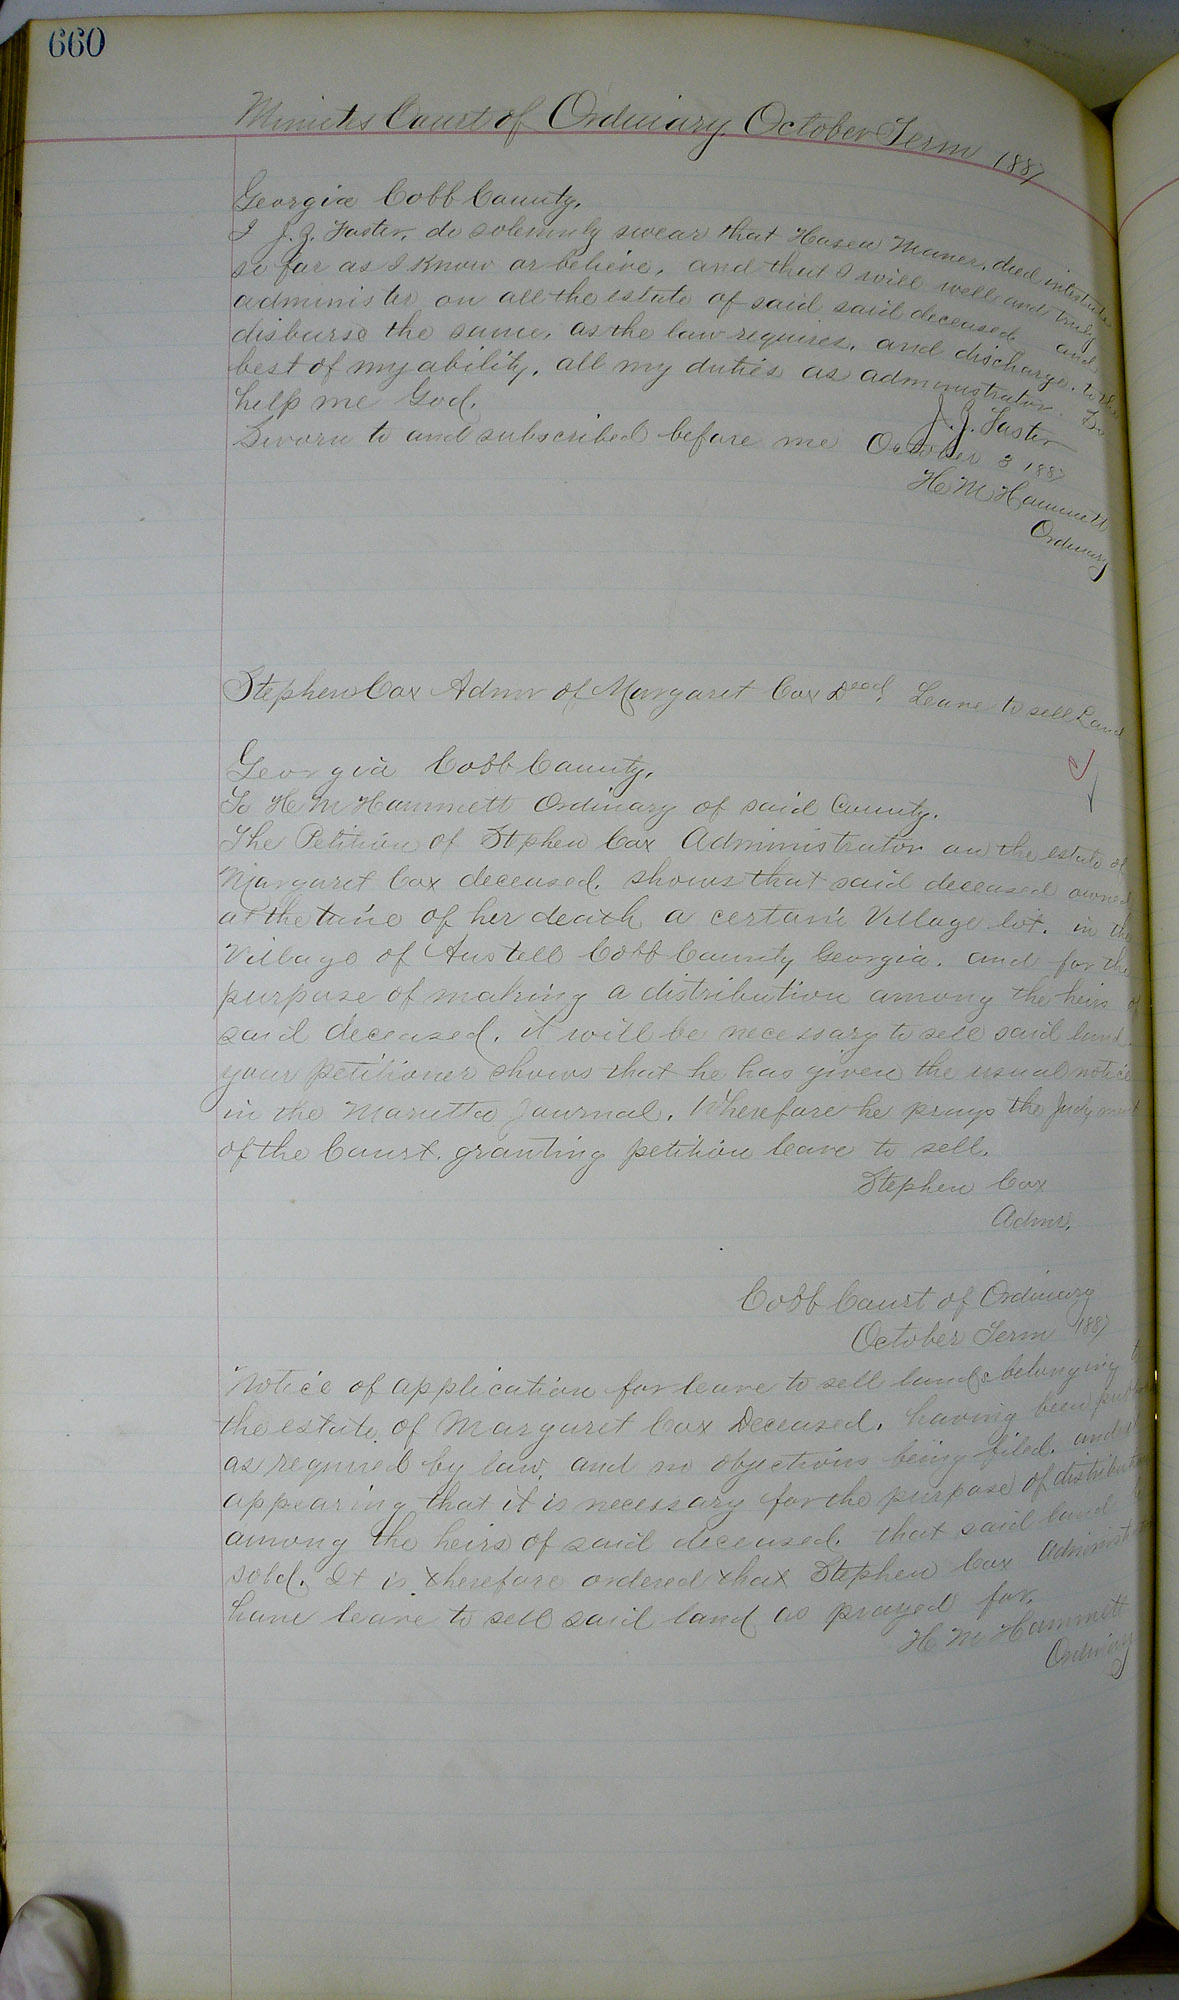 660
Minutes Court of Ordinary October Term 1887
Georgia Cobb County.
I J. Z. Foster, do solemnly swear that Hosea Maner, died intestate
so far as I know or believe, and that I will well and truly
administer on all the estate of said said deceased and
disburse the same, as the law requires, and discharge, to the
best of my ability, all my duties as administrator. So
help me God.
J. Z. Foster
Sworn to and subscribed before me October 3 1887
H M Hammett
Ordinary
Stephen Cox Admr of Margaret Cox Decd, Leave to sell Land
Georgia Cobb County.
To H M Hammett Ordinary of said County.
The Petition of Stephen Cox Administrator on the estate of
Margaret Cox deceased, shows that said deceased owned
at the time of her death a certain Village lot, in the
Village of Austell Cobb County Georgia, and for the
purpose of making a distribution among the heirs of
said deceased, it will be necessary to sell said land.
your petitioner shows that he has given the usual notice
in the Marietta Journal. Wherefore he prays the Judgment
of the Court, granting petition leave to sell.
Stephen Cox
Admr.
Cobb Court of Ordinary
October Term 1887
Notice of application for leave to sell lands belonging to
the estate of Margaret Cox Deceased, having been
as required by law, and no objections being filed, and it
appearing that it is necessary for the purpose of distribution
among the heirs of said deceased, that said land
sold. It is therefore ordered that Stephen Cox
have leave to sell said land as prayed for.
H M Hammett
Ordinary